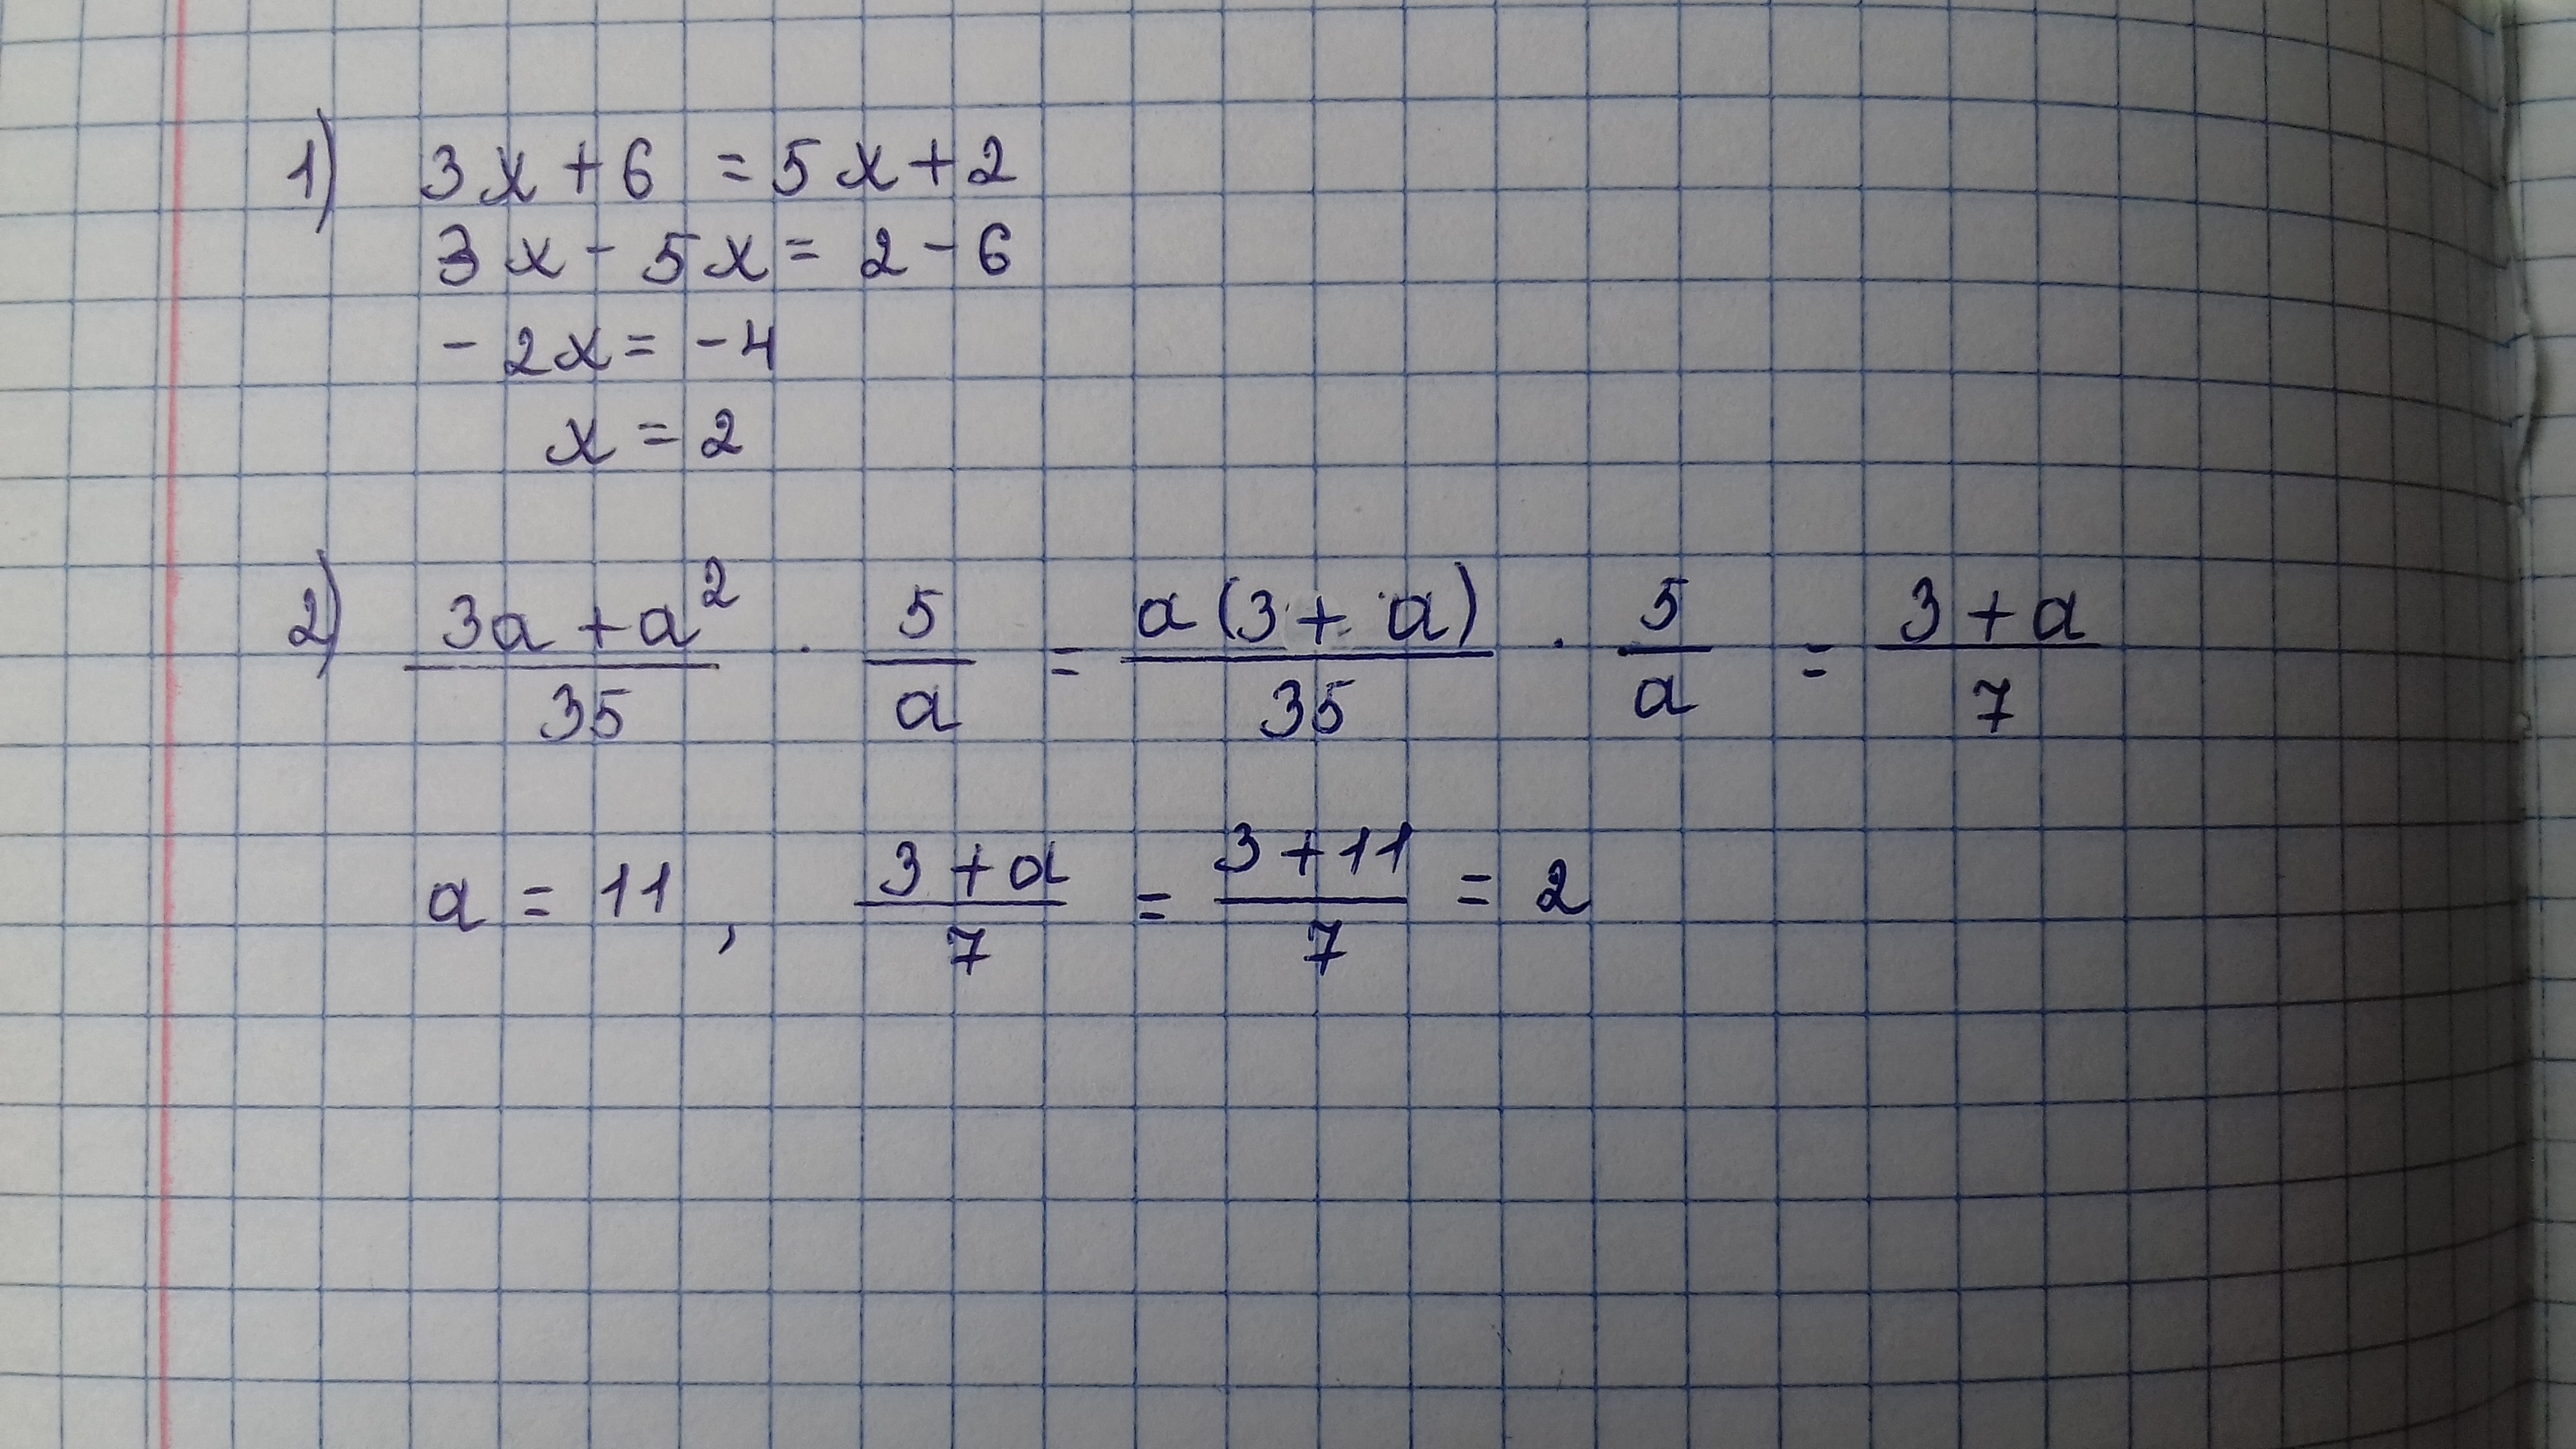 1) 3x + 6 = 5x + 2
3x - 5x = 2 - 6
- 2x = -4
x = 2
2) \frac{3a + a^2}{35} \cdot \frac{5}{a} = \frac{a(3 + a)}{35} \cdot \frac{5}{a} = \frac{3 + a}{7}
a = 11, \frac{3 + a}{7} = \frac{3 + 11}{7} = 2